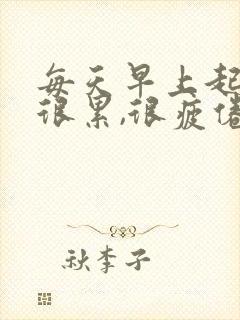 每天早上起
很累,很疲倦
秋李子